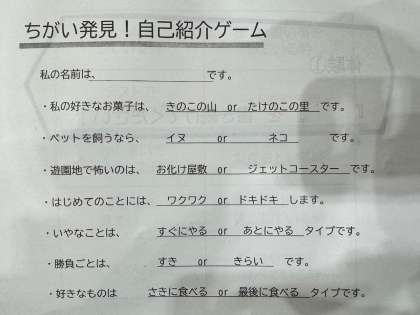 ちがい発見！自己紹介ゲーム
私の名前は、＿＿＿＿＿＿＿＿＿＿です。
・私の好きなお菓子は、 きのこの山 or たけのこの里 です。
・ペットを飼うなら、 イヌ or ネコ です。
・遊園地で怖いのは、 お化け屋敷 or ジェットコースター です。
・はじめてのことには、 ワクワク or ドキドキ します。
・いやなことは、 すぐにやる or あとにやる タイプです。
・勝負ごとは、 すき or きらい です。
・好きなものは さきに食べる or 最後に食べる タイプです。